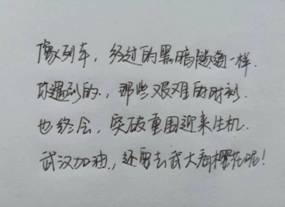 像列车，经过的黑暗隧道一样.
你遇到的.，那些艰难的时刻.
也终会，突破重围迎来生机.
武汉加油.，还要去武大看樱花呢！